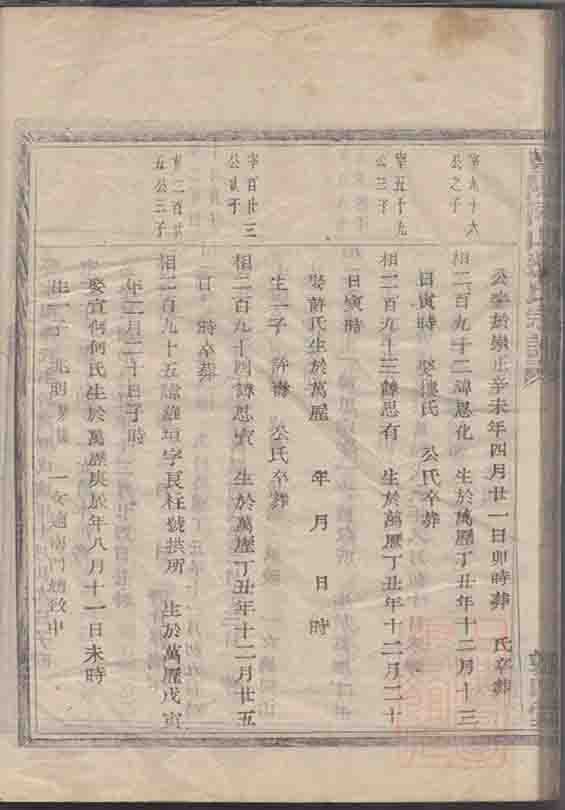 公卒於崇正辛未年四月廿一日卯時葬 氏卒葬
宰九十六
公之子
相二百九十二諱思化 生於萬歷丁丑年十二月十三
日寅時 娶樓氏 公氏卒葬
宰五十九
公三子
相二百九十三諱思有 生於萬歷丁丑年十二月二十
日寅時
娶俞氏生於萬歷 年 月 日 時
生一子 公氏卒葬
宰百廿三
公 子
相二百九十四諱思賓 生於萬歷丁丑年十二月廿五
日 時卒葬
三百廿
五公三子
相二百九十五諱 垣字良柱號拱所 生於萬歷戊寅
年二月二十日子時
娶宣何何氏生於萬歷庚辰年八月十一日未時
生一子 兆明 一女適南門趙致中